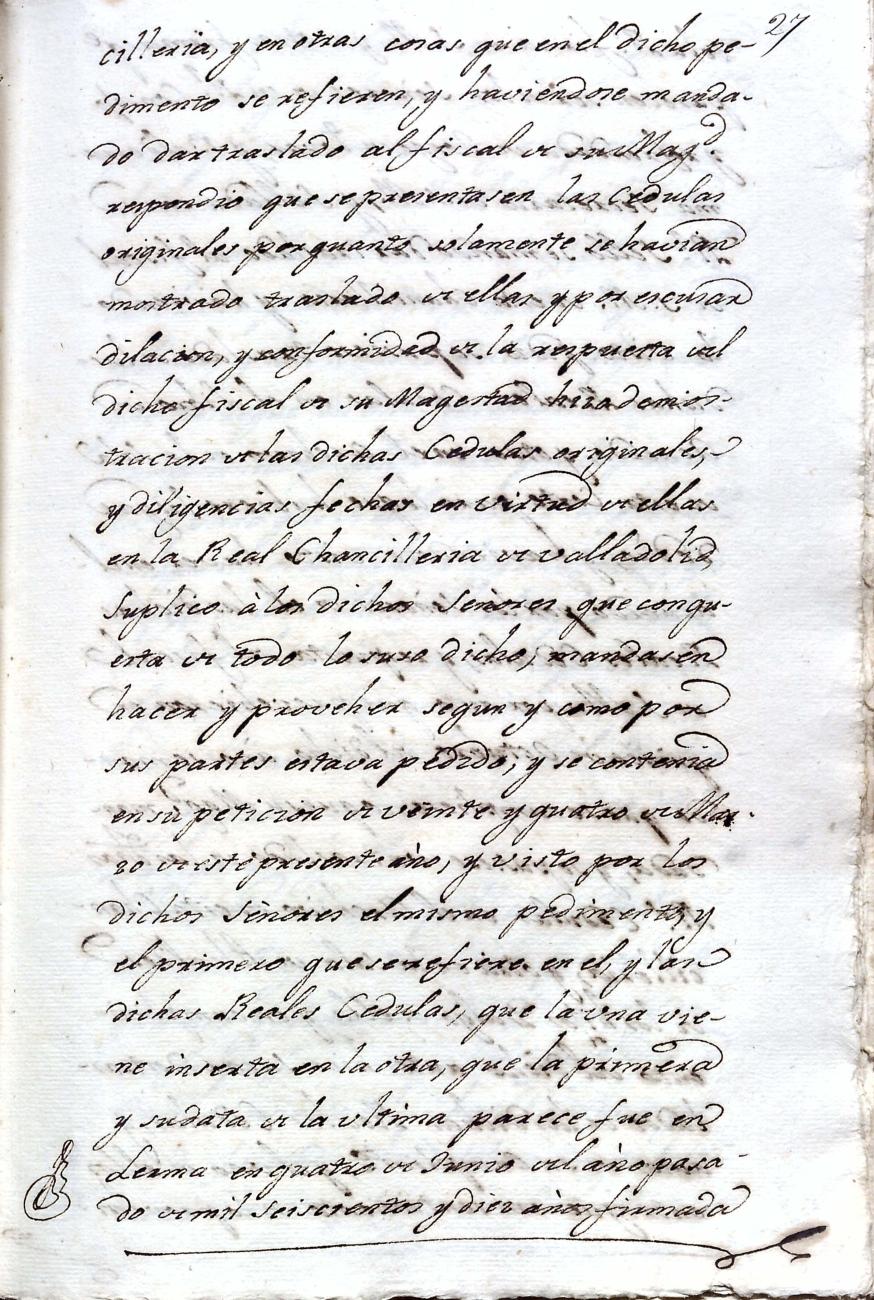 27
cilleria, y en otras cosas que en el dicho pe-
dimento se refieren, y haviendose manda-
do dar traslado al fiscal de su Magd.
respondio que se presentasen las Cedulas
originales por quanto solamente se havian
mostrado traslado de ellas y por escusar
dilacion, y conformidad de la respuesta del
dicho fiscal de su Magestad hiza demos-
tracion de las dichas Cedulas originales,
y diligencias fechas en virtud de ellas
en la Real Chancilleria de valladolid
suplico à los dichos Señores que con qu-
esta de todo lo suso dicho, mandasen
hacer y proveher segun y como por
sus partes estava pedido, y se contenia
en su peticion de veinte y quatro de Mar-
zo de este presente año, y visto por los
dichos Señores el mismo pedimento, y
el primero que se refiere en el, y las
dichas Reales Cedulas, que la vna vie-
ne inserta en la otra, que la primera
y su data de la vltima parece fue en
Lerma en quatro de Junio del año pasa-
do de mil seiscientos y diez años firmada